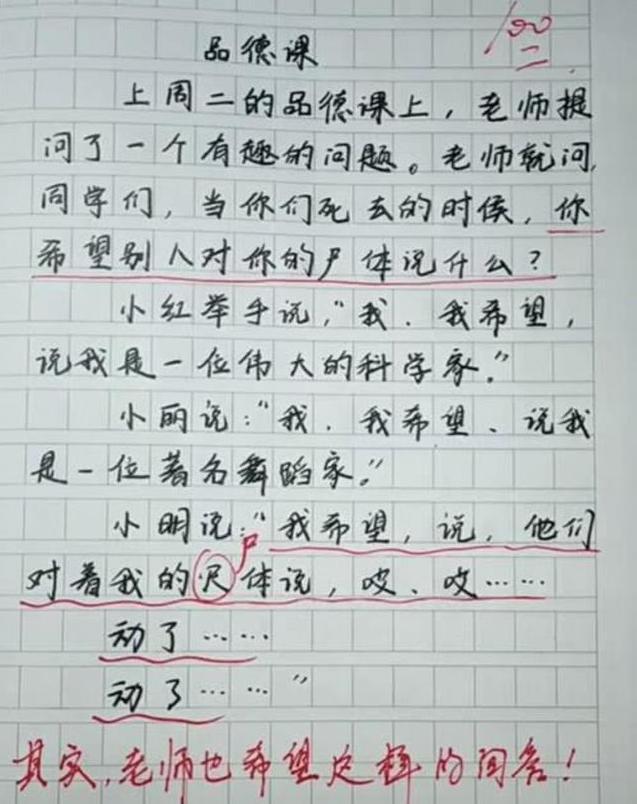 100
品德课
上周二的品德课上，老师提
问了一个有趣的问题。老师就问，
同学们，当你们死去的时候，你
希望别人对你的尸体说什么？
小红举手说，“我．我希望，
说我是一位伟大的科学家．”
小丽说：“我．我希望、说我
是一位著名舞蹈家．”
小明说：“我希望，说，他们
对着我的尺体说，哎、哎……
尸
动了……
动了……”
其实，老师也希望这样的回答！